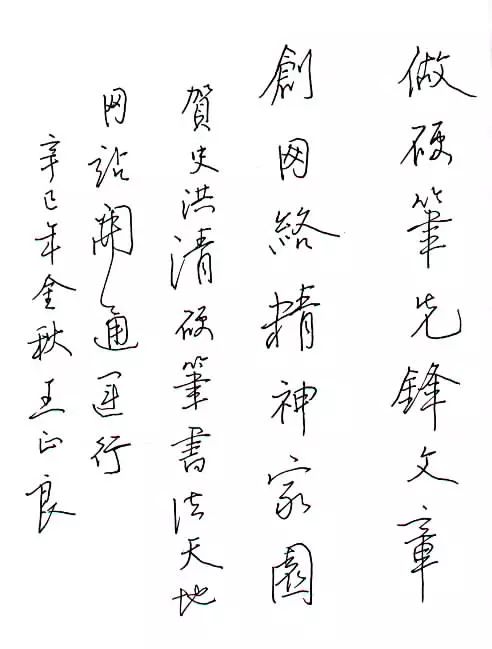 做硬筆先鋒文章
創网絡精神家園
賀史洪清硬筆書法天地
网站開通运行
辛巳年金秋王正良